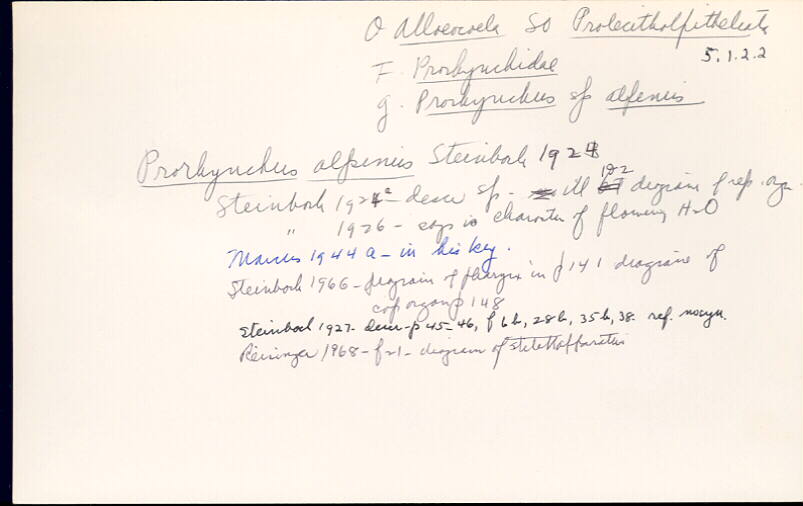 O Alloeocoela SO Prolecithoepitheliata
5.1.2.2
F. Prorhynchidae
g. Prorhynchus sp alpinus
Prorhynchus alpinus Steinbock 1924
Steinbock 1924a - descr sp. - ill 182 diagram of rep. org.
" 1926 - says is character of flowing H2O
Marcus 1944a - in his key.
Steinbock 1966 - diagram of pharynx in p 141 diagrams of
cop organ p 148
Steinbock 1927 - descr - p 45-46, f 6b, 28b, 35b, 38. ref. nosyn.
Reisinger 1968 - f21 - diagram of stilettapparatus